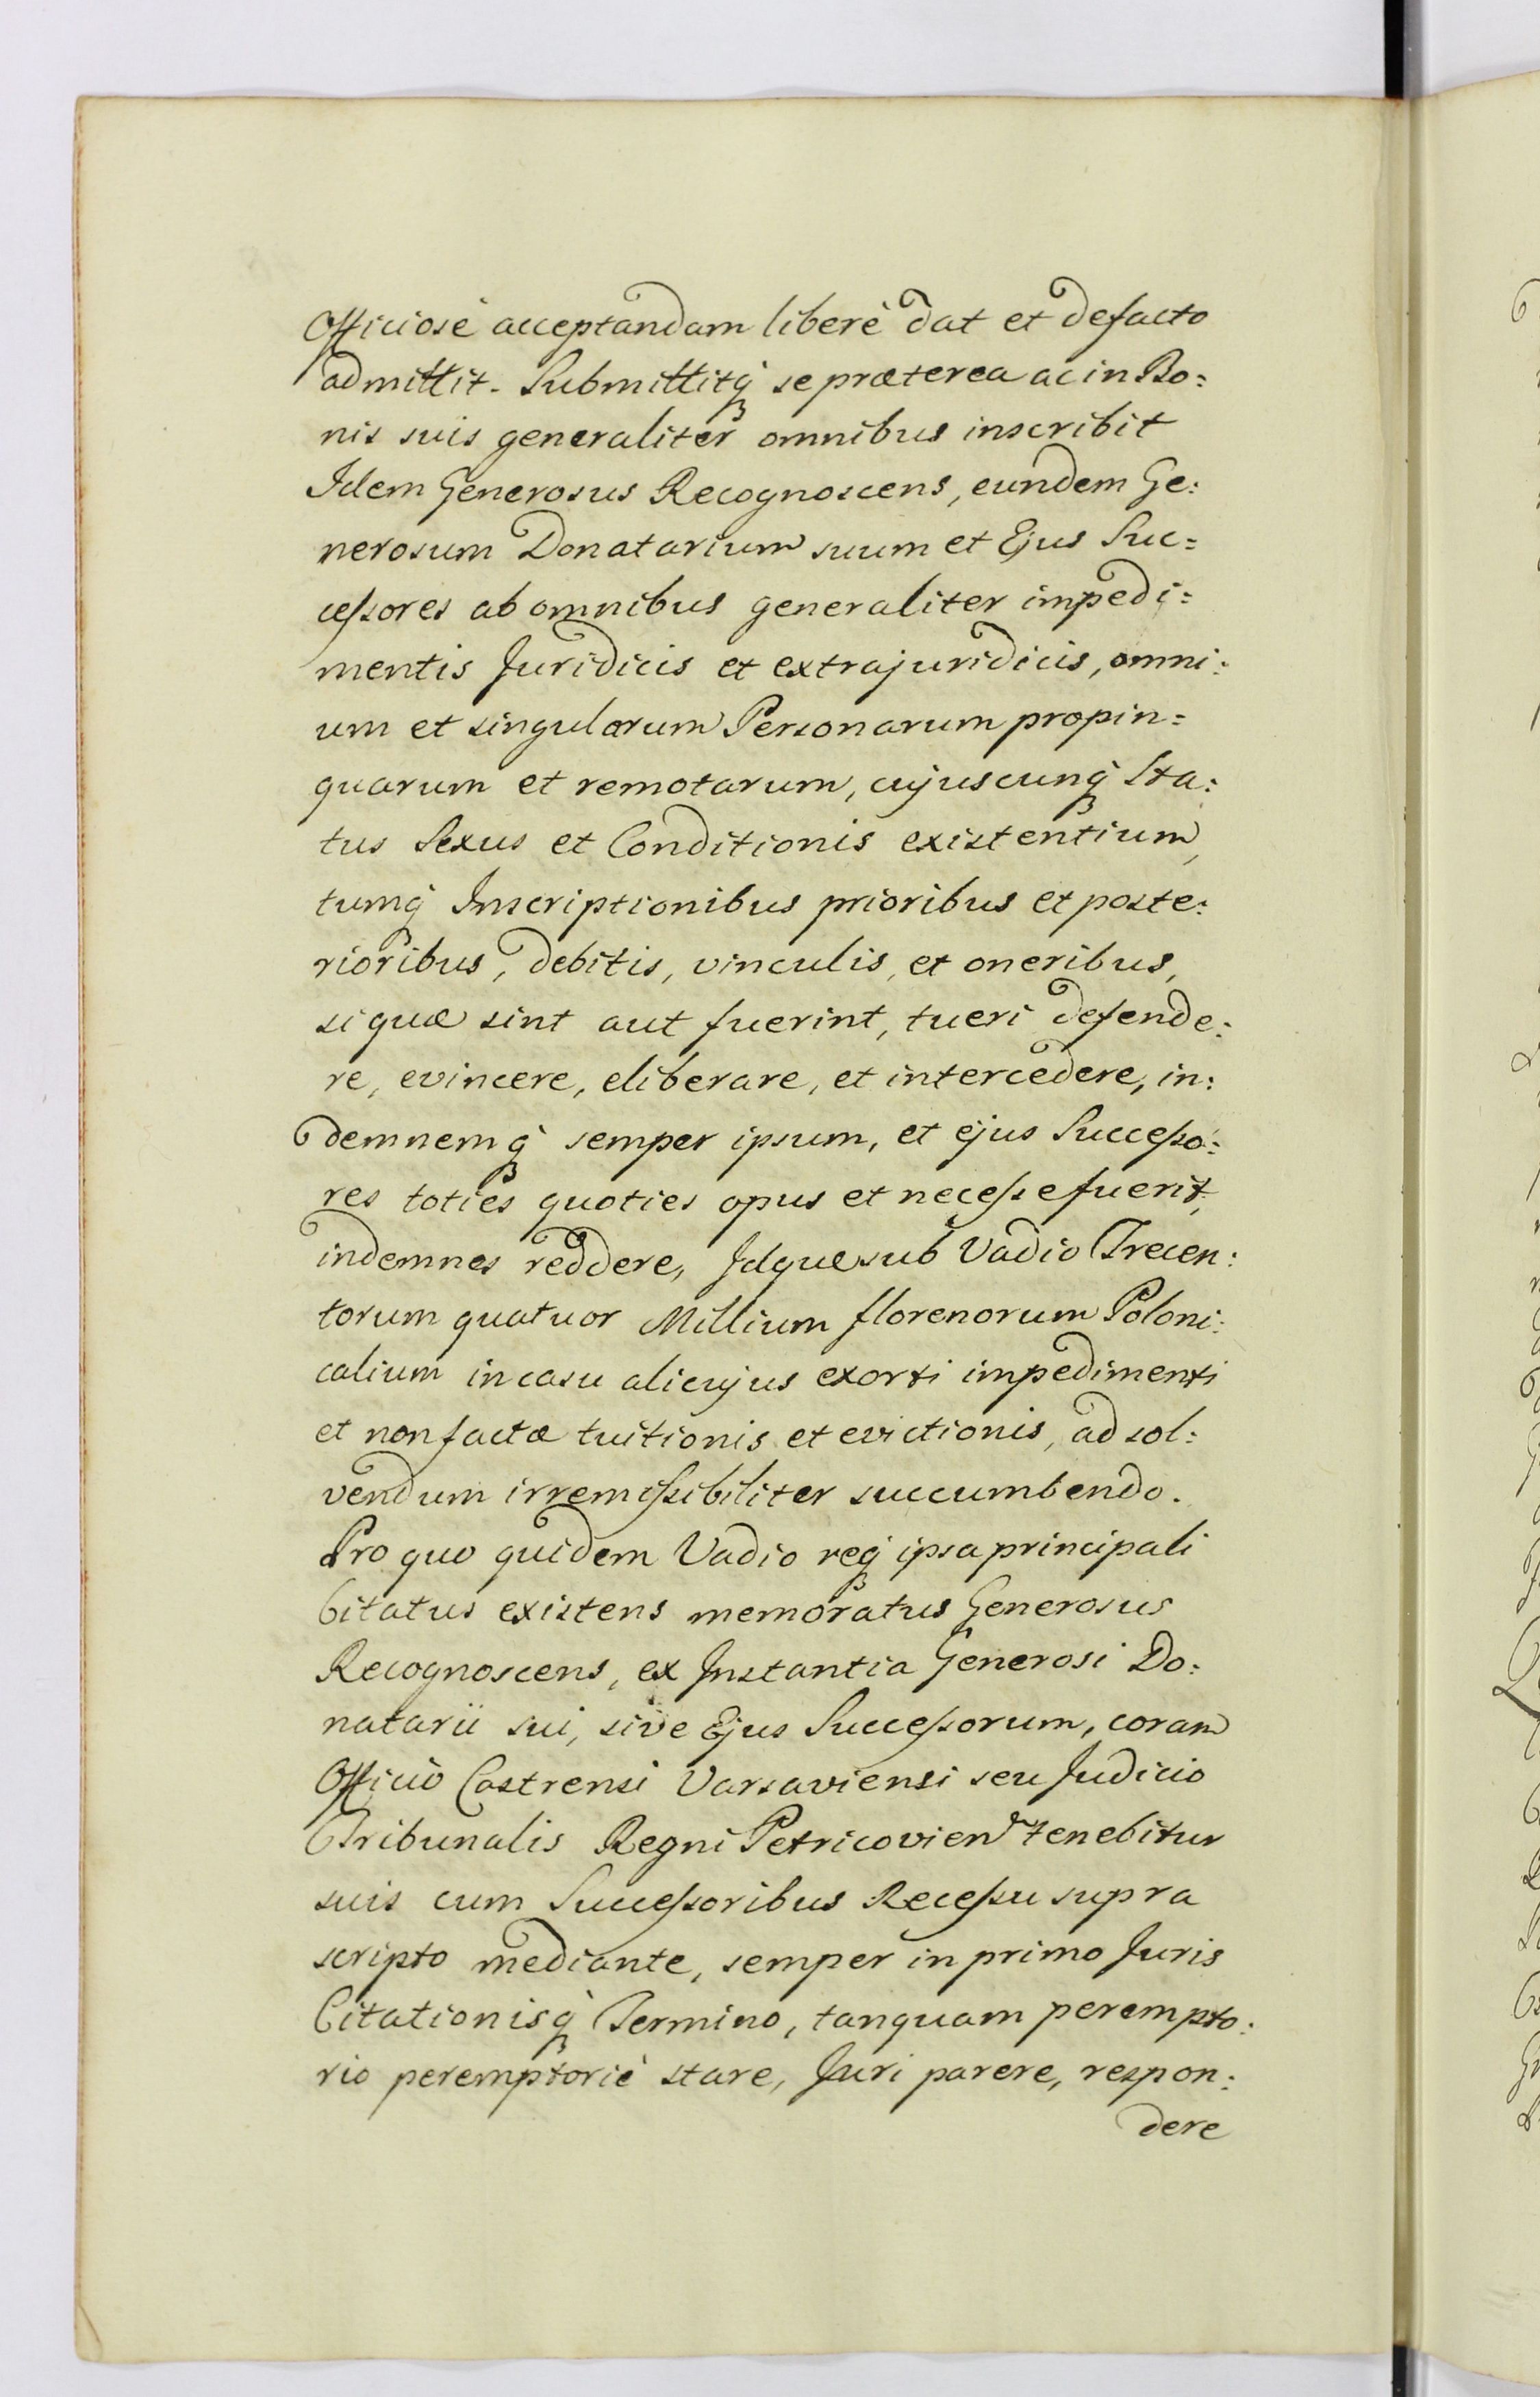 Officiosè acceptandam liberè dat et defacto
admittit. Submittitq̃ se præterea ac in Bo=
nis suis generaliter omnibus inscribit
Idem Generosus Recognoscens, eundem Ge:
nerosum Donatarium suum et Ejus Suc=
ceſsores ab omnibus generaliter impedi=
mentis Juridicis et extrajuridicis, omni:
um et singularum Personarum propin=
quarum et remotarum, cujuscunq̃ Sta:
tus Sexus et Conditionis existentium,
tumq̃ Inscriptionibus prioribus et poste:
rioribus, debitis, vinculis, et oneribus,
si quæ sint aut fuerint, tueri defende:
re, evincere, eliberare, et intercedere, in:
demnemq̃ semper ipsum, et ejus Succeſso:
res toties quoties opus et neceſse fuerit,
indemnes reddere, Idque sub Vadio Trecen:
torum quatuor Millium florenorum Poloni:
calium in casu alicujus exorti impedimenti
et non factæ tuitionis et evictionis, ad sol:
vendum irremiſsibiliter succumbendo.
Pro quo quidem Vadio req̃ ipsa principali
Citatus existens memoratus Generosus
Recognoscens, ex Instantia Generosi Do:
natarii sui, sive Ejus Succeſsorum, coram
Officio Castrensi Varsaviensi seu Judicio
Tribunalis Regni Petricovien̄ tenebitur
suis cum Succeſsoribus Receſsu supra
scripto mediante, semper in primo Juris
Citationisq̃ Termino, tanquam perempto:
rio peremptoriè stare, Juri parere, respon:
dere